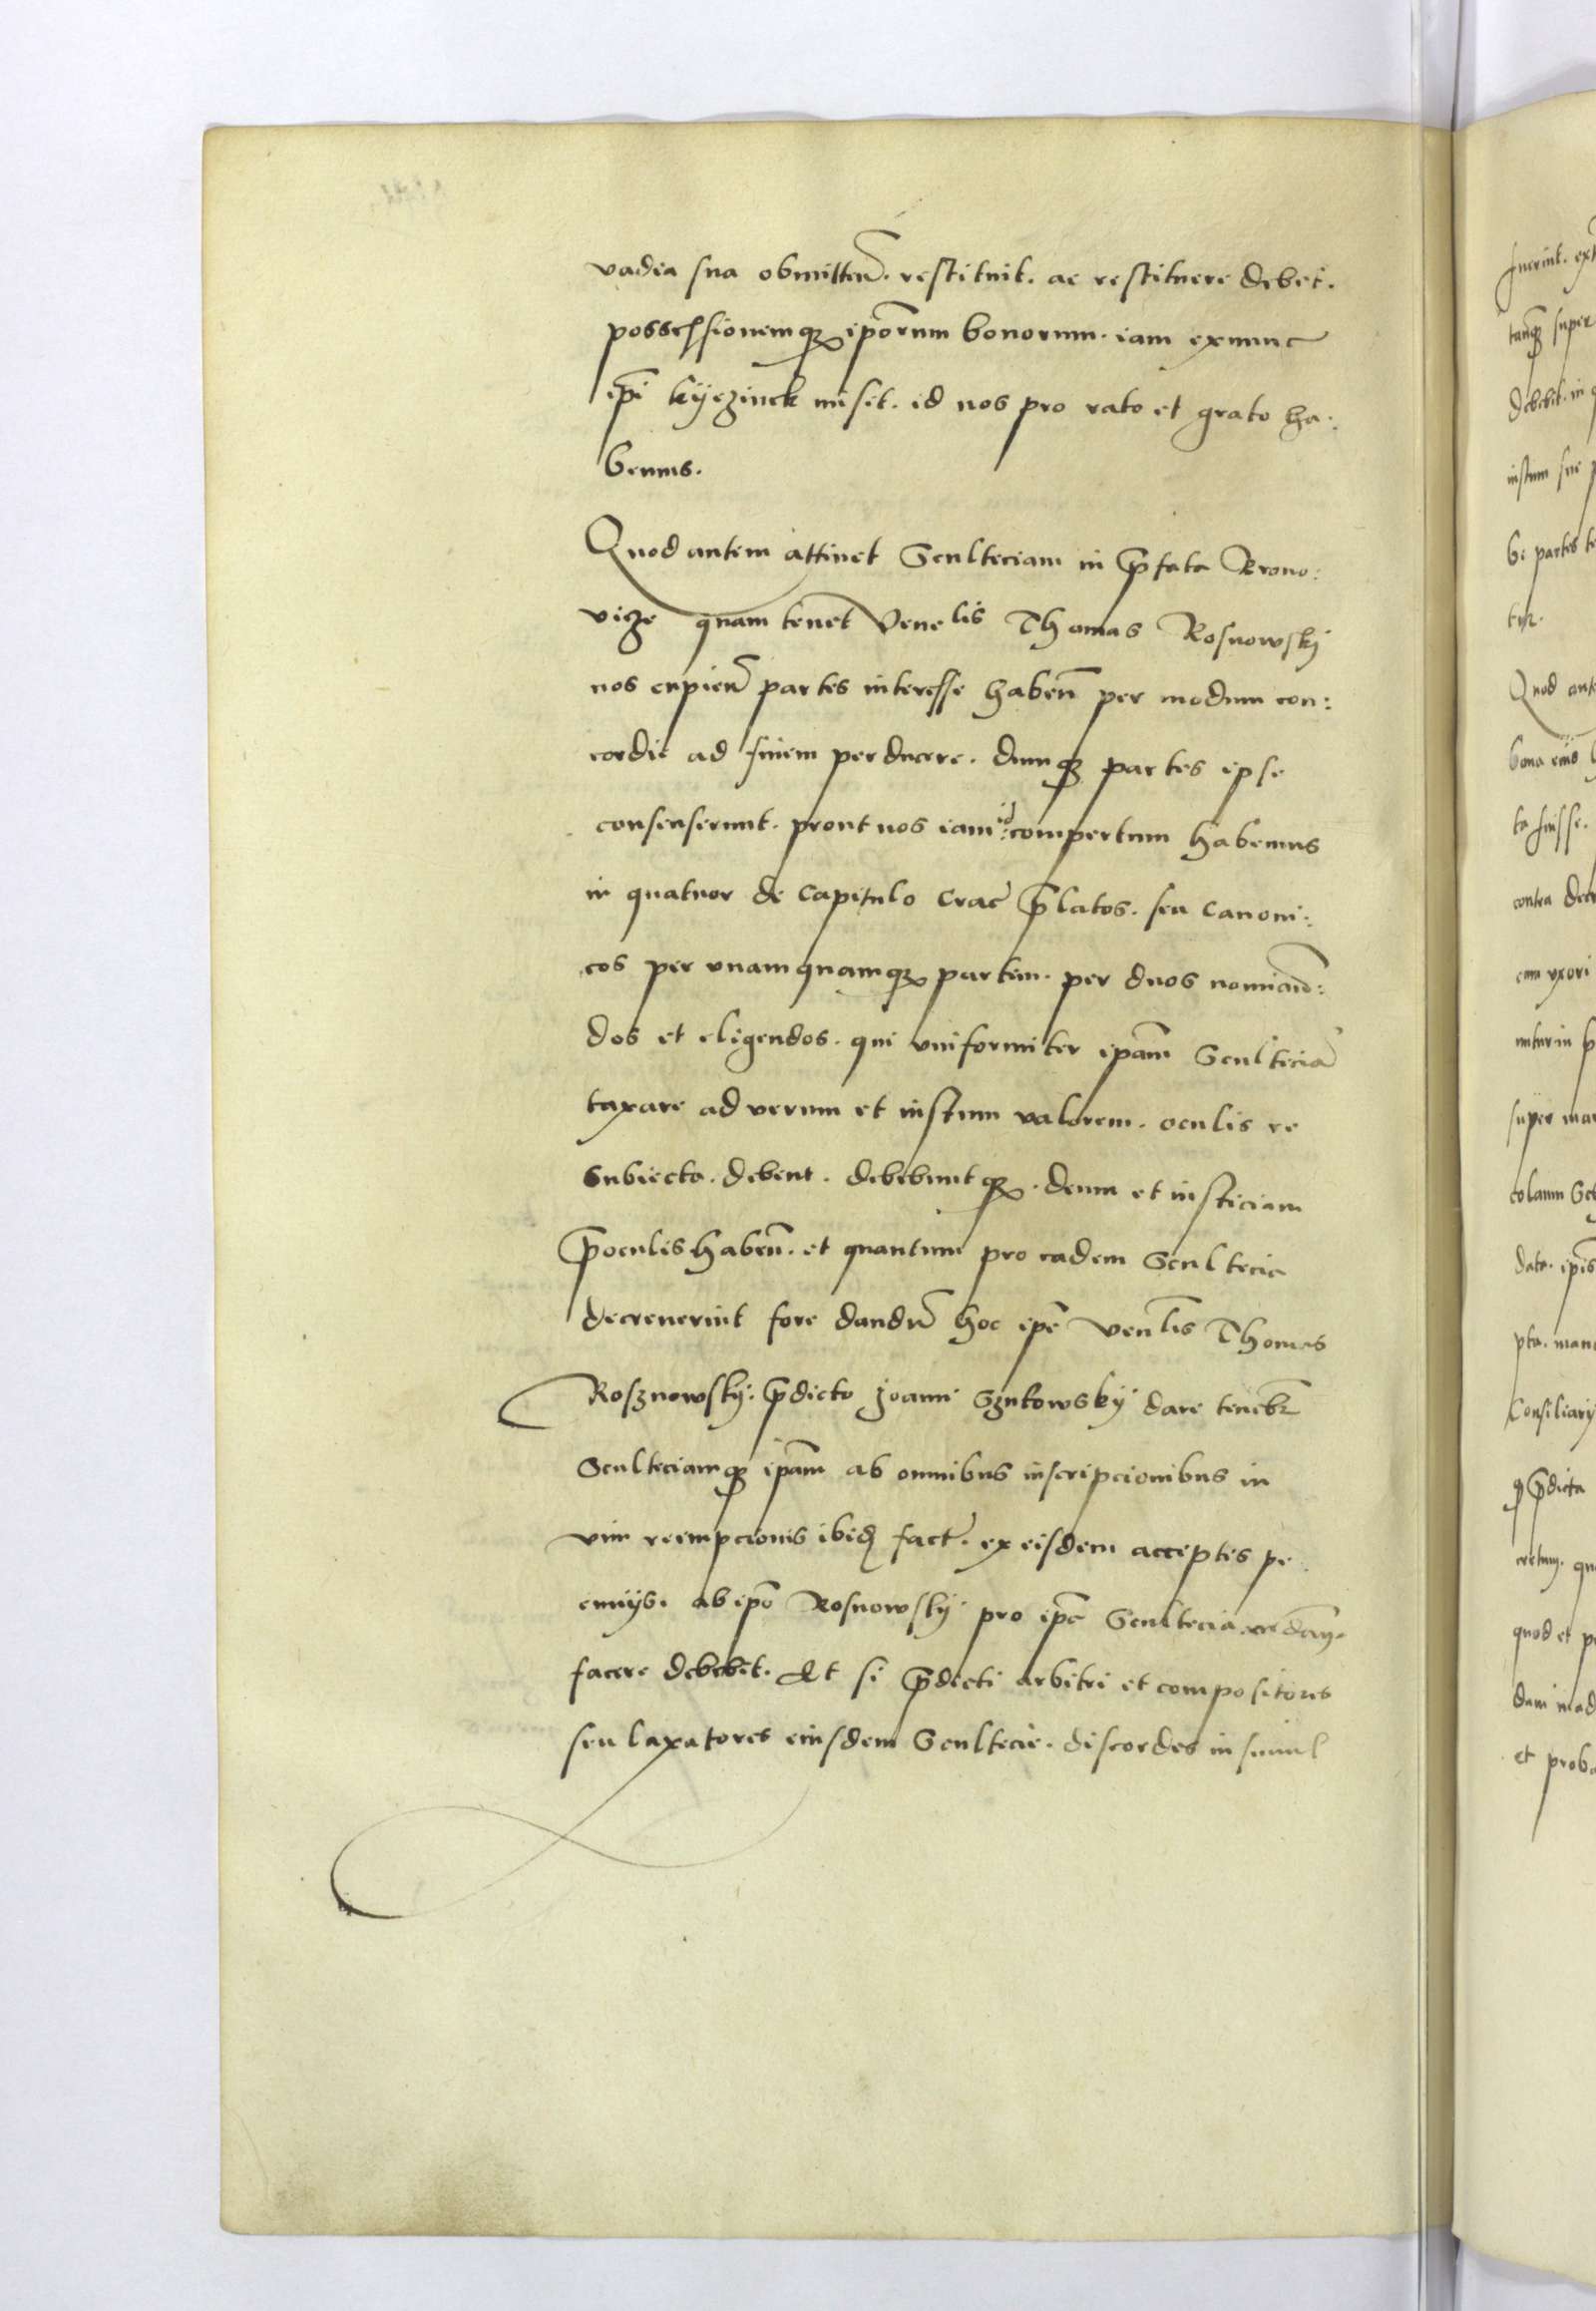 vadia sua obmitten̄. restituit. ac restituere debet.
possessionemqꝫ ip̄orum bonorum. iam exnunc
ip̄i Kyezinck misit. id nos pro rato et grato ha:
bemus.
Quod autem attinet Sculteciam in p̄fata Brono:
vicze quam tenet Venelis Thomas Rosnowskj
nos cupien̄ partes interesse haben̄ per modum con:
cordie ad finem perducere. dumqꝫ partes ipse
consenserunt. prout nos iam id compertum habemus
in quatuor de Capitulo Crac̄ p̄latos. seu Canoni:
cos per unamquamqꝫ partem. per duos nomian̄:
dos et eligendos. qui uniformiter ip̄am Sculteciā
taxare ad verum et iustum valorem. oculis re
subiecta. debent. debebuntqꝫ. deum et iusticiam
p̄oculis haben̄. et quantum pro eadem Scultecia
decreverint fore dandū hoc ip̄e Ven̄lis Thomas
Rosznowskÿ. p̄dicto Joanni Szutowskÿ dare teneb̄r
Sculteciamqꝫ ip̄am ab omnibus inscripcionibus in
vim reempcionis ibid̄ fact̄. ex eisdem acceptis pe
cuniÿs. ab ip̄o Rosnowskÿ pro ip̄a Scultecia
facere debebit. Et si p̄dicti arbitri et compositores
seu taxatores eiusdem Scultecie. discordes in simul
fuerint.
tanqꝫ super
debebit. in
iustum sue
be partes
tur.
Quod
bona eius
ta fuisse.
contra
cum uxori
super
data. ip̄is
Consiliarÿ
p̄dicta
quod et
et